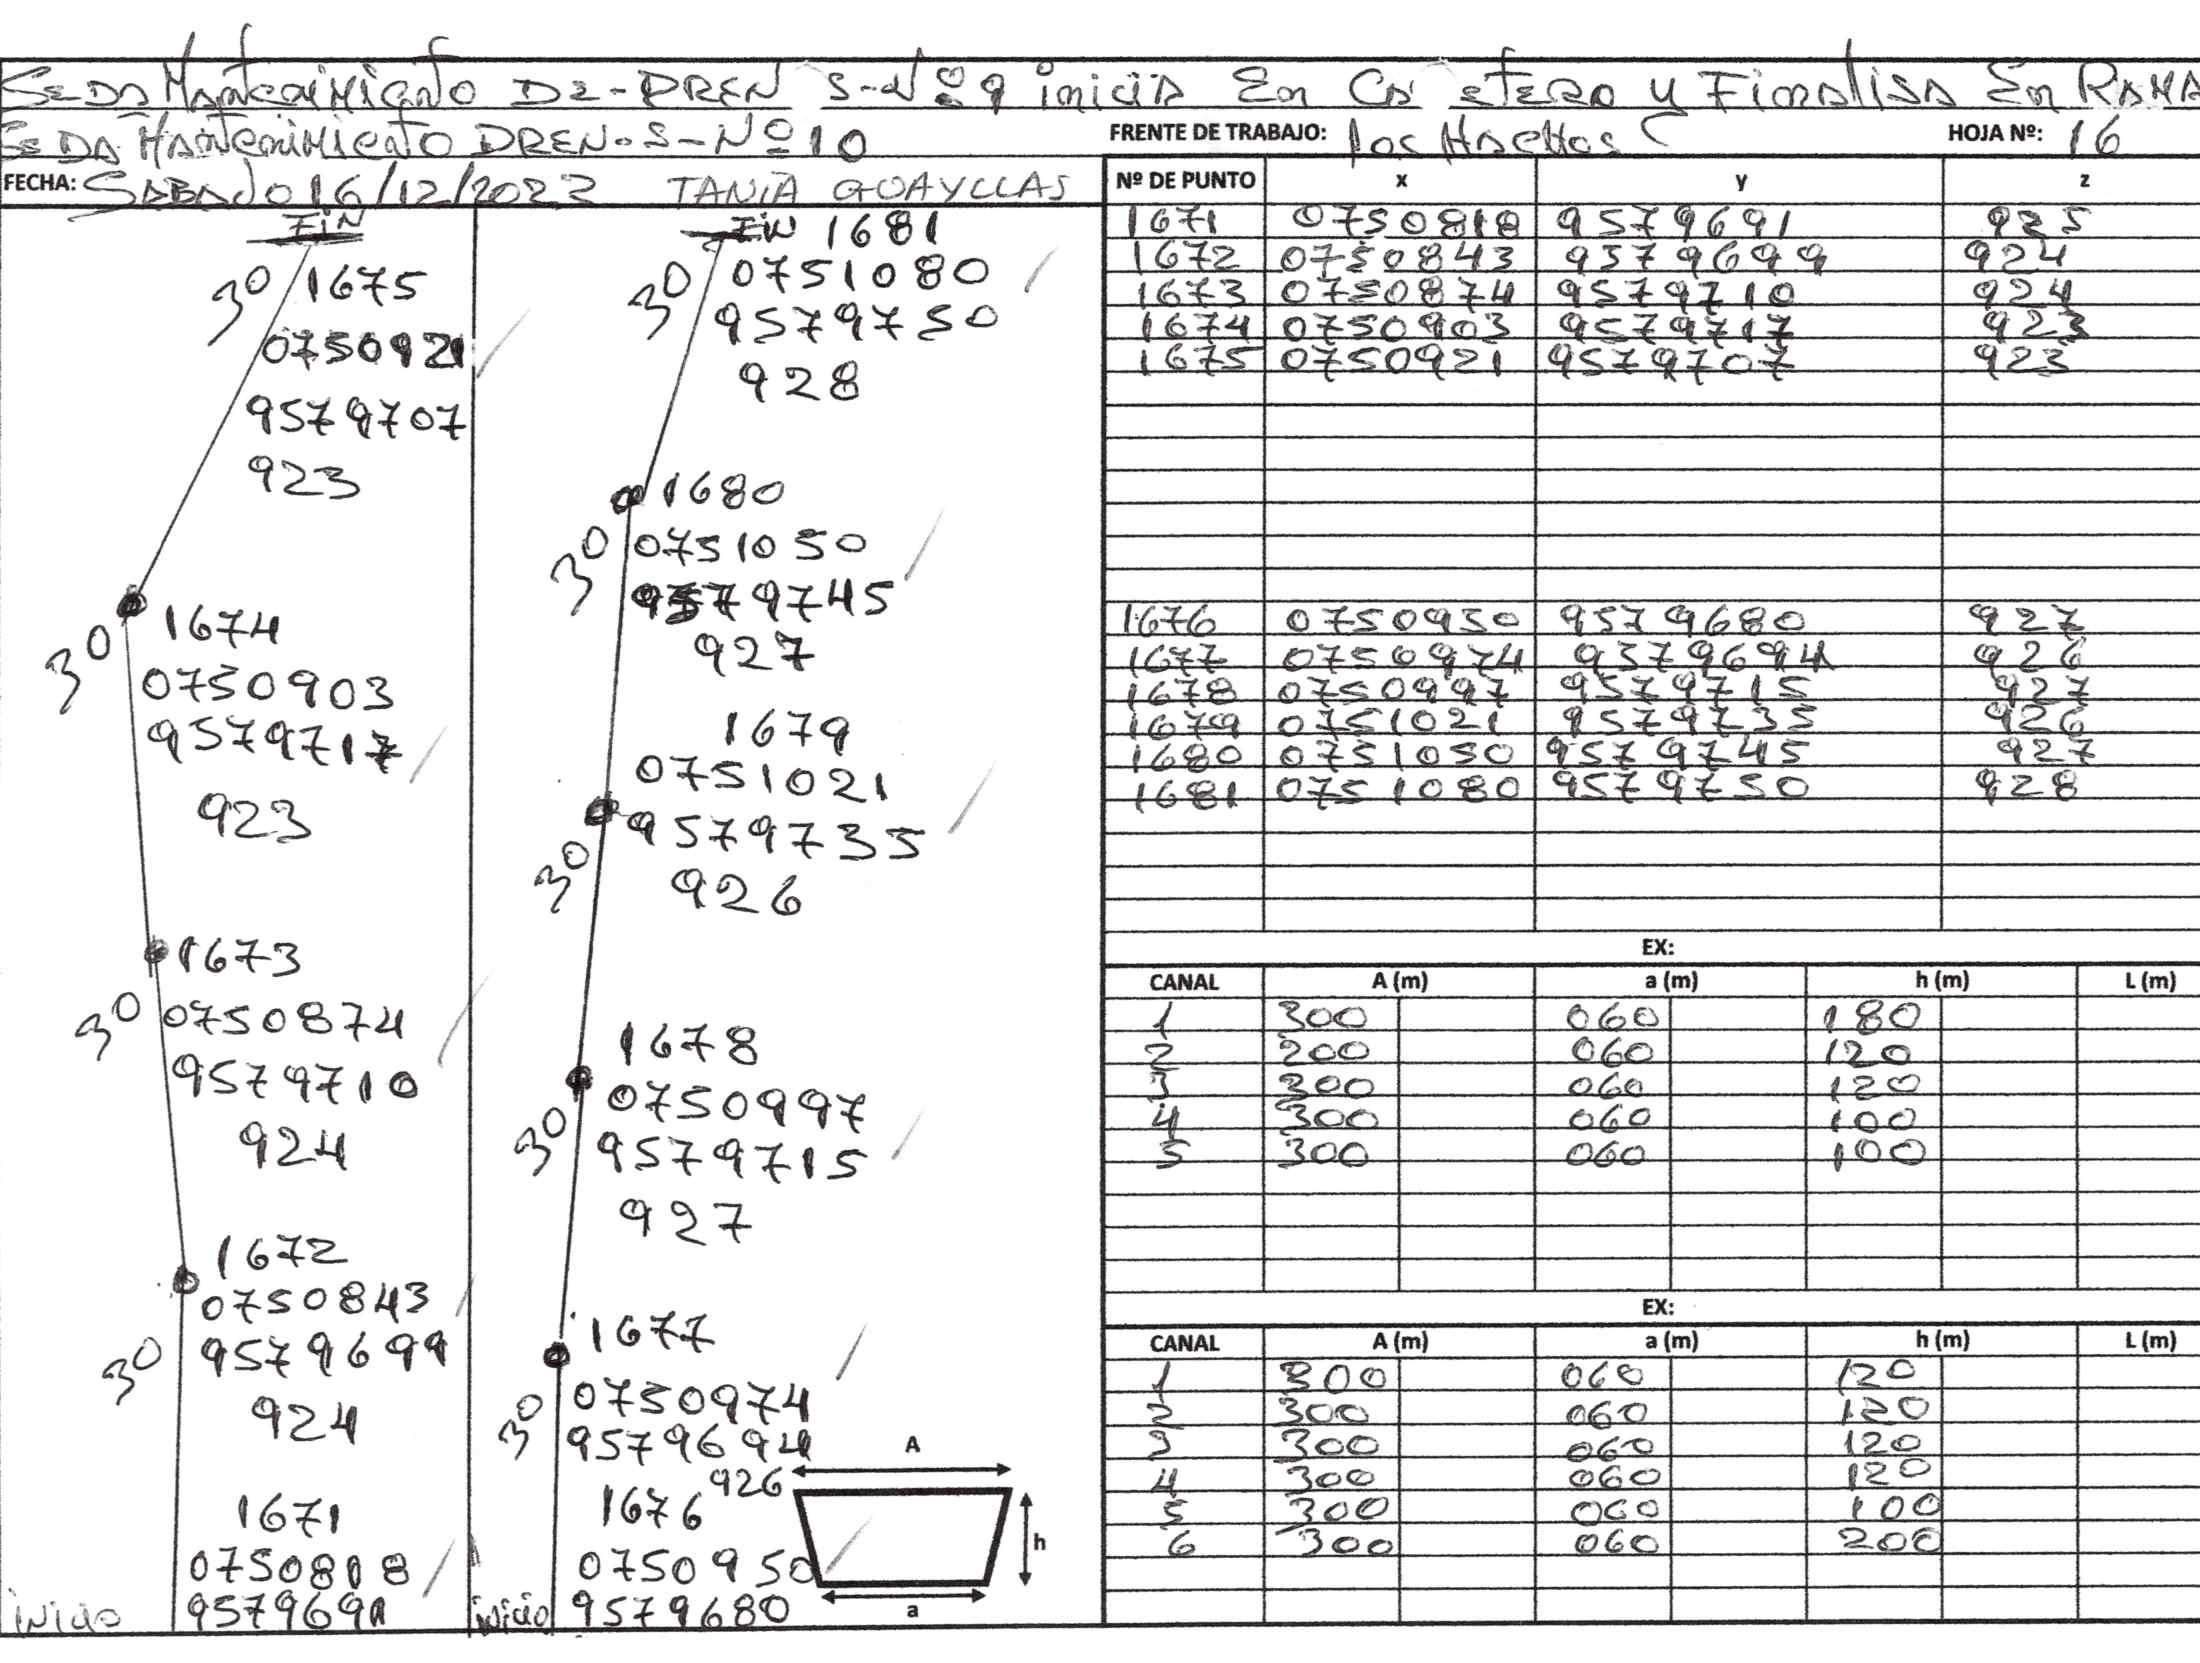 Se DA Mantenimiento DE-DREN S-Nº 9 inicia En y Finalisa En RAMA
Se DA Mantenimiento DREN-S-Nº 10
FRENTE DE TRABAJO: Los
HOJA Nº: 16
FECHA: SABADO 16/12/2023 TANIA GUAYLLAS
FIN
30 1675
0750921
9579707
923
30 1674
0750903
9579717
923
1673
30 0750874
9579710
924
1672
0750843
30 9579699
924
1671
0750818
inicio 9579691
FIN 1681
30 0751080
9579750
928
1680
30 0751050
9579745
927
1679
0751021
9579735
30 926
1678
0750997
30 9579715
927
1677
0750974
30 9579694
926
1676
0750950
inicio 9579680
A
h
a
Nº DE PUNTO x y z
1671 0750818 9579691 925
1672 0750843 9579699 924
1673 0750874 9579710 924
1674 0750903 9579717 923
1675 0750921 9579707 923
1676 0750950 9579680 927
1677 0750974 9579694 926
1678 0750997 9579715 927
1679 0751021 9579735 926
1680 0751050 9579745 927
1681 0751080 9579750 928
EX:
CANAL A (m) a (m) h (m) L (m)
1 300 060 180
2 200 060 120
3 300 060 120
4 300 060 100
5 300 060 100
EX:
CANAL A (m) a (m) h (m) L (m)
1 300 060 120
2 300 060 120
3 300 060 120
4 300 060 120
5 300 060 100
6 300 060 200